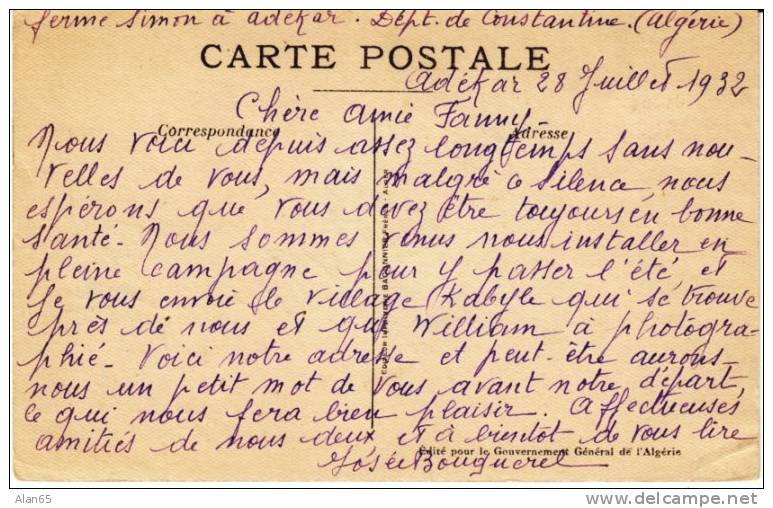 ferme Simon à adékar. Dépt. de Constantine. (Algérie)
CARTE POSTALE
Adékar 28 Juillet 1932
Chère Amie Fanny
Correspondance
Adresse
Nous voici depuis assez longtemps sans nou-
velles de vous, mais malgré ce silence, nous
espérons que vous devez être toujours en bonne
santé. Nous sommes venus nous installer en
pleine campagne pour y passer l'été, et
je vous envoie le village Kabyle qui se trouve
près de nous et que William à photogra-
phié. Voici notre adresse et peut-être aurons-
nous un petit mot de vous avant notre départ,
ce qui nous fera bien plaisir. Affectueuses
amitiés de nous deux et à bientot de vous lire
Edité pour le Gouvernement Général de l'Algérie
Josée Bouquerel
Alan65
delcampe.net